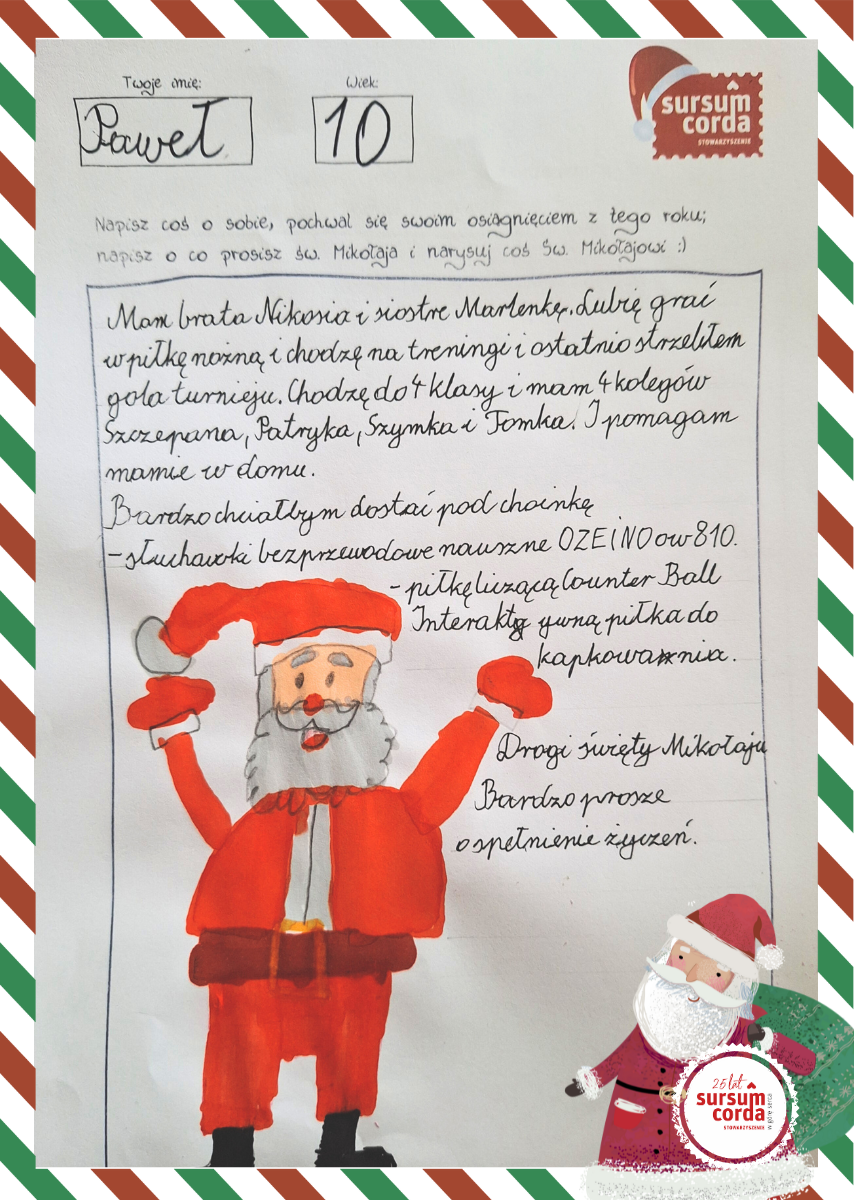 Twoje imię:
Wiek:
Paweł
10
sursum
corda
STOWARZYSZENIE
Napisz coś o sobie, pochwal się swoim osiągnięciem z tego roku;
napisz o co prosisz św. Mikołaja i narysuj coś Św. Mikołajowi :)
Mam brata Nikosia i siostre Marlenkę. Lubię grać
w piłkę nożną i chodzę na treningi i ostatnio strzeliłem
gola turnieju. Chodzę do 4 klasy i mam 4 kolegów
Szczepana, Patryka, Szymka i Tomka. I pomagam
mamie w domu.
Bardzo chciałbym dostać pod choinkę
- słuchawki bezprzewodowe nauszne OZEINO ow 810.
- piłkę liczącą Counter Ball
Interaktywną piłka do
kapkowania.
Drogi święty Mikołaju
Bardzo prosze
o spełnienie życzeń.
25 lat
sursum
corda
STOWARZYSZENIE
w górę serca